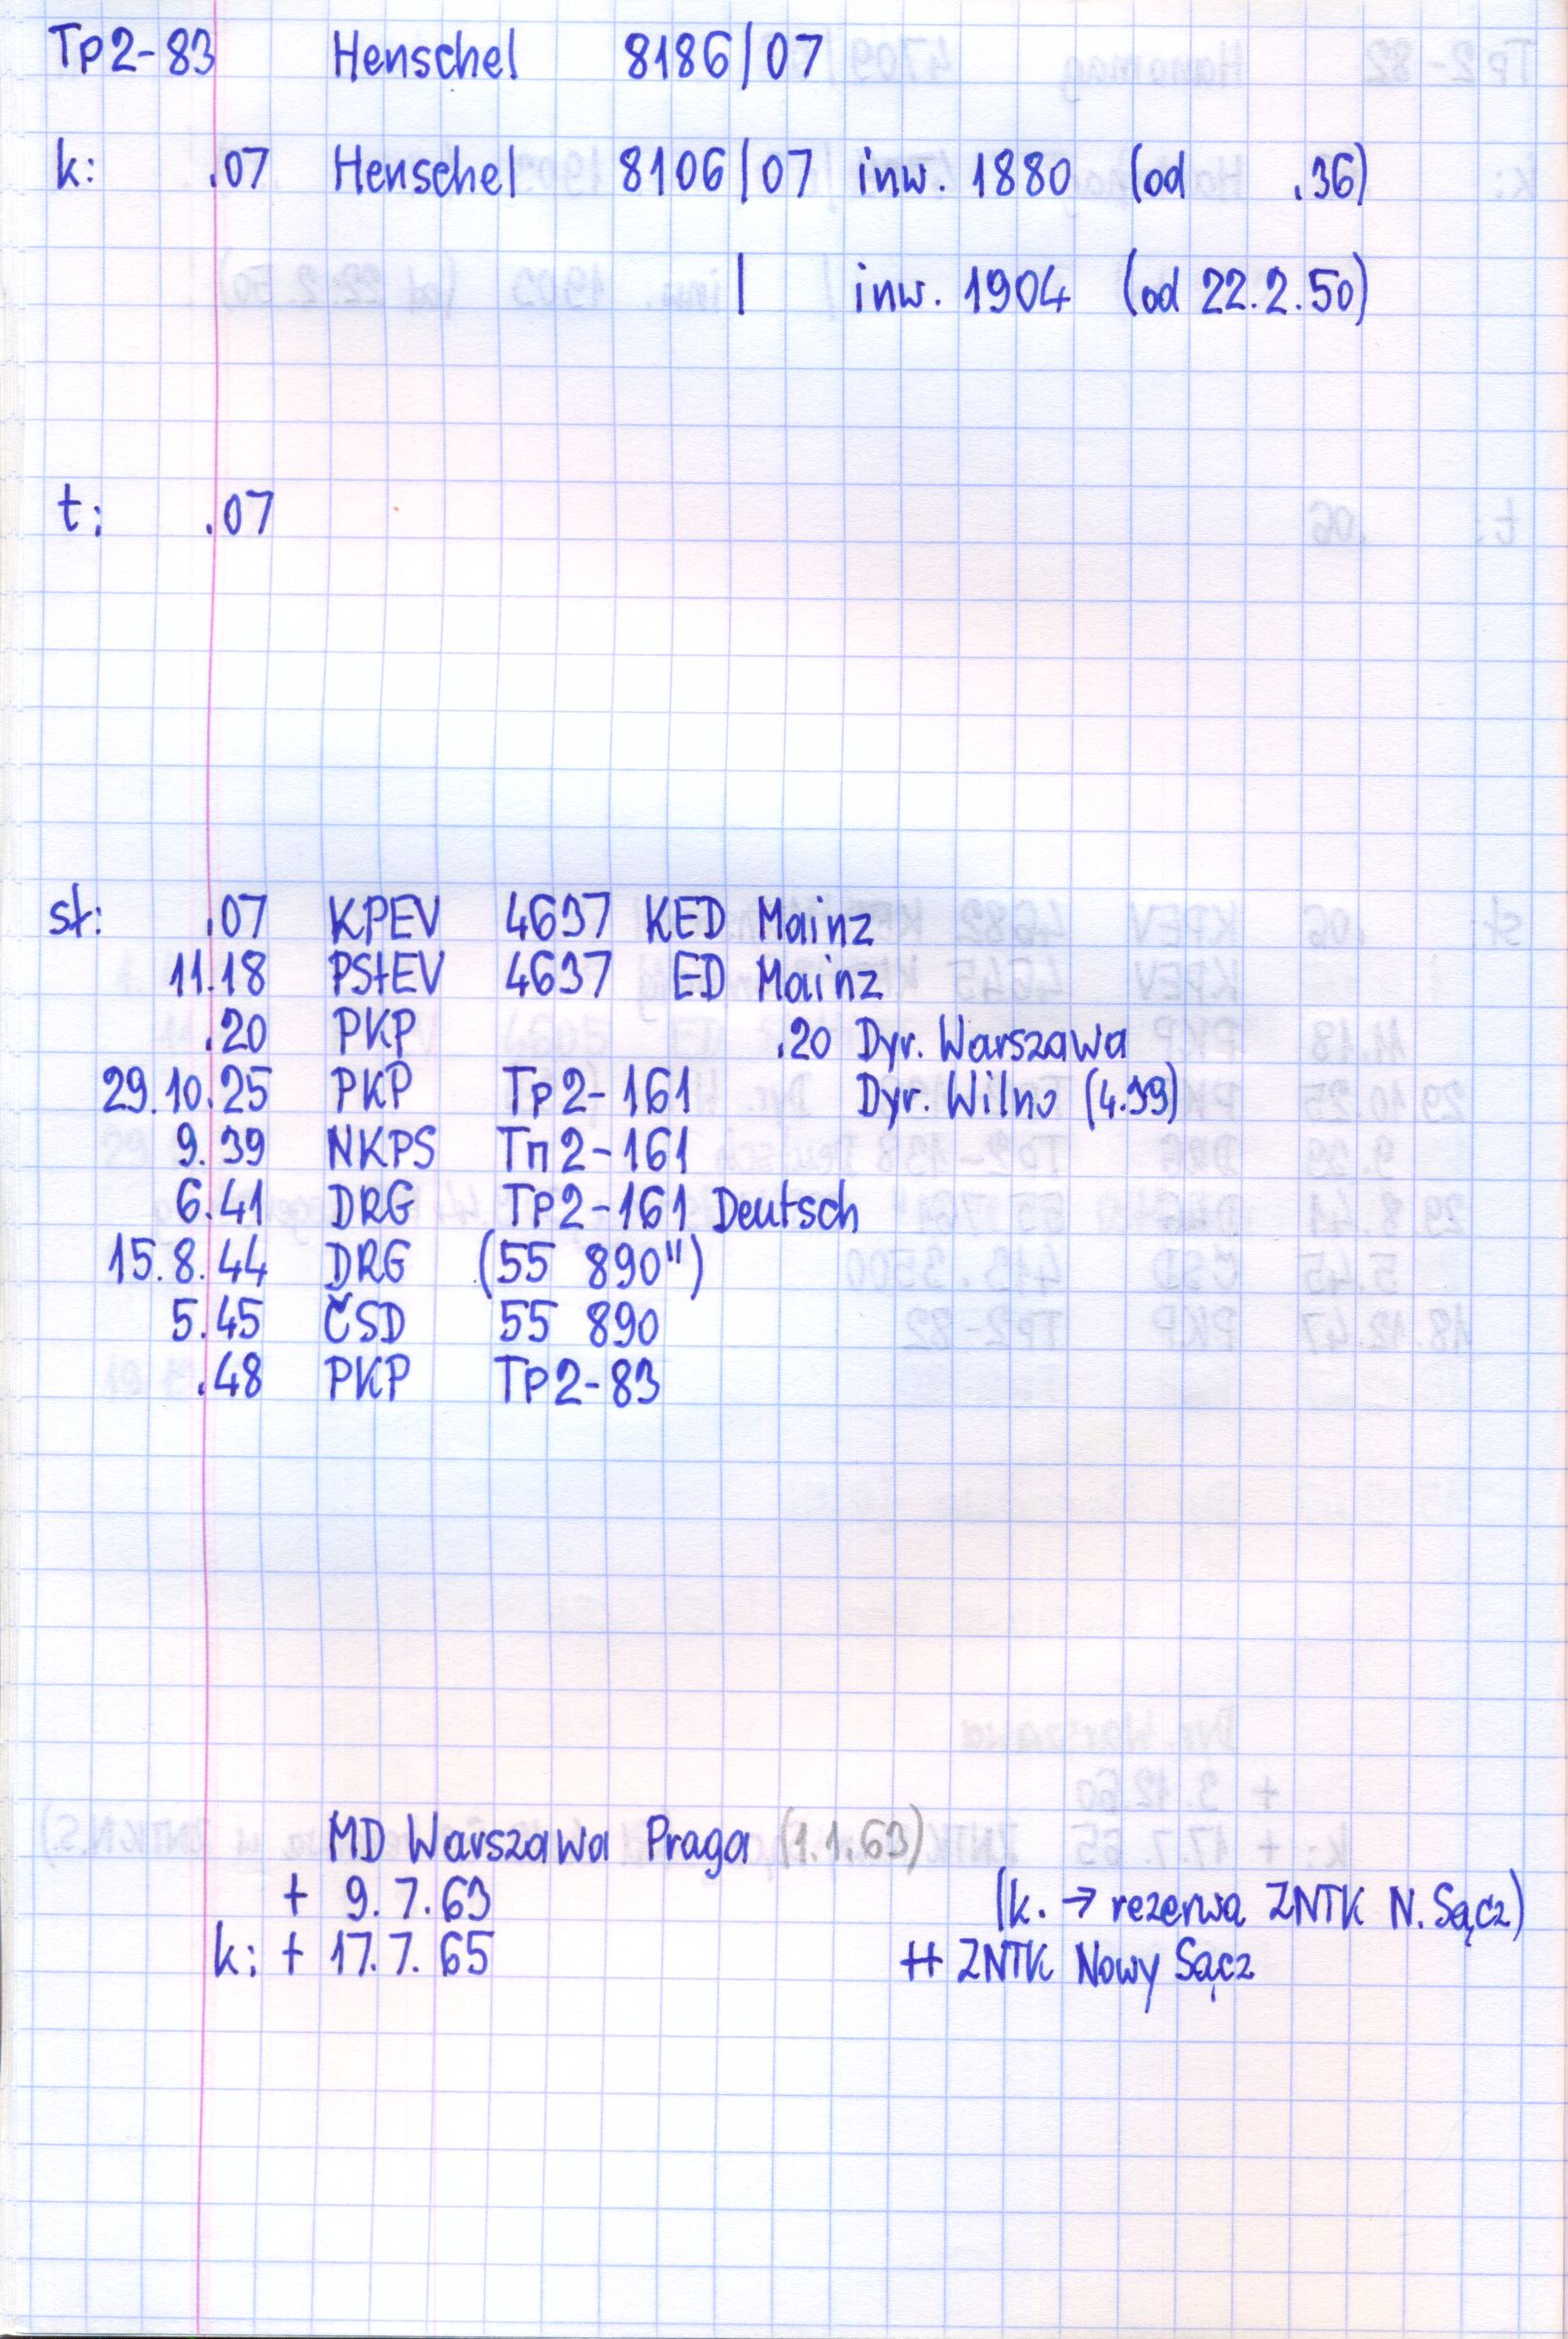 Tp2-83 Henschel 8186/07
k: .07 Henschel 8106/07 inw. 1880 (od .36)
/ inw. 1904 (od 22.2.50)
t: .07
st: .07 KPEV 4637 KED Mainz
11.18 PStEV 4637 ED Mainz
.20 PKP .20 Dyr. Warszawa
29.10.25 PKP Tp2-161 Dyr. Wilno (4.39)
9.39 NKPS Тп2-161
6.41 DRG Tp2-161 Deutsch
15.8.44 DRG (55 890")
5.45 ČSD 55 890
.48 PKP Tp2-83
MD Warszawa Praga (1.1.63)
+ 9.7.63 (k. → rezerwa ZNTK N. Sącz)
k: + 17.7.65 ++ ZNTK Nowy Sącz